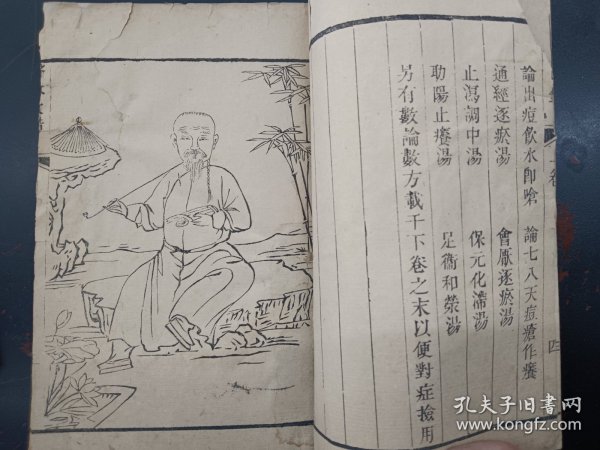 論出痘飲水即嗆　論七八天痘瘡作癢
通經逐瘀湯　會厭逐瘀湯
止瀉調中湯　保元化滯湯
助陽止癢湯　足衛和榮湯
另有數論數方載于下卷之末以便對症撿用
上卷
四
孔夫子旧书网
www.kongfz.com